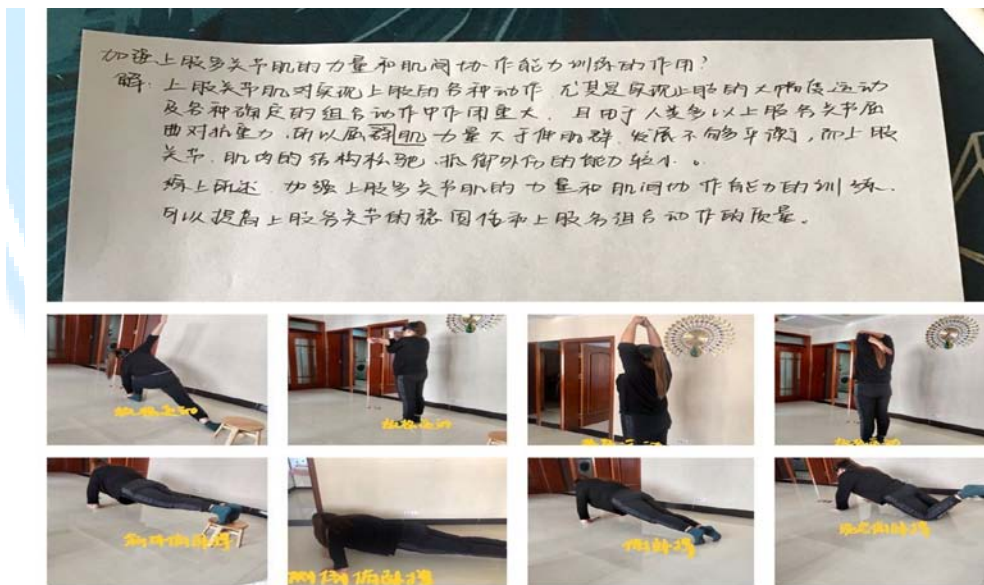 加强上肢多关节肌的力量和肌间协作能力训练的作用?
解: 上肢关节肌对实现上肢的各种动作, 尤其是实现上肢的大幅度运动
及各种确定的组合动作中作用重大。且由于人类多以上肢各关节屈
曲对抗重力, 所以屈群肌力量大于伸肌群, 发展不够平衡, 而上肢
关节、肌肉的结构松驰, 抵御外伤的能力较小。
综上所述, 加强上肢多关节肌的力量和肌间协作能力的训练.
可以提高上肢各关节的稳固性和上肢各组合动作的质量。
拉伸运动
俯卧撑